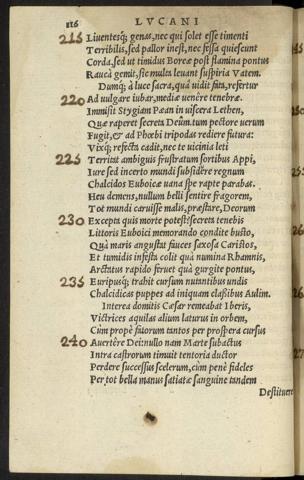 116 LVCANI
215 Liuentesq́; genas, nec qui solet esse timenti
Terribilis, sed pallor inest, nec fessa quiescunt
Corda, sed ut tumidus Boreæ post flamina pontus
Rauca gemit, sic multa leuant suspiria Vatem.
Dumq́; à luce sacra, quà uidit fata, refertur
220 Ad uulgare iubar, mediæ uenêre tenebræ.
Immisit Stygiam Pæan in uiscera Lethen,
Quæ raperet secreta Deûm. tum pectore uerum
Fugit, & ad Phœbi tripodas rediere futura:
Vixq́; refecta cadit, nec te uicinia leti
225 Territat ambiguis frustratum sortibus Appi,
Iure sed incerto mundi subsidere regnum
Chalcidos Euboicæ uana spe rapte parabas.
Heu demens, nullum belli sentire fragorem,
Tot mundi caruisse malis, præstare, Deorum
230 Excepta quis morte potest? secreta tenebis
Littoris Euboici memorando condite busto,
Quà maris angustat fauces saxosa Caristos,
Et tumidis infesta colit quà numina Rhamnis,
Arctatus rapido feruet quà gurgite pontus,
235 Euripusq́; trahit cursum mutantibus undis
Chalcidicas puppes ad iniquam classibus Aulim.
Interea domitis Cæsar remeabat Iberis,
Victrices aquilas alium laturus in orbem,
Cùm propè fatorum tantos per prospera cursus
240 Auertêre Dei: nullo nam Marte subactus
Intra castrorum timuit tentoria ductor
Perdere successus scelerum, cùm penè fideles
Per tot bella manus satiatæ sanguine tandem
Destituere